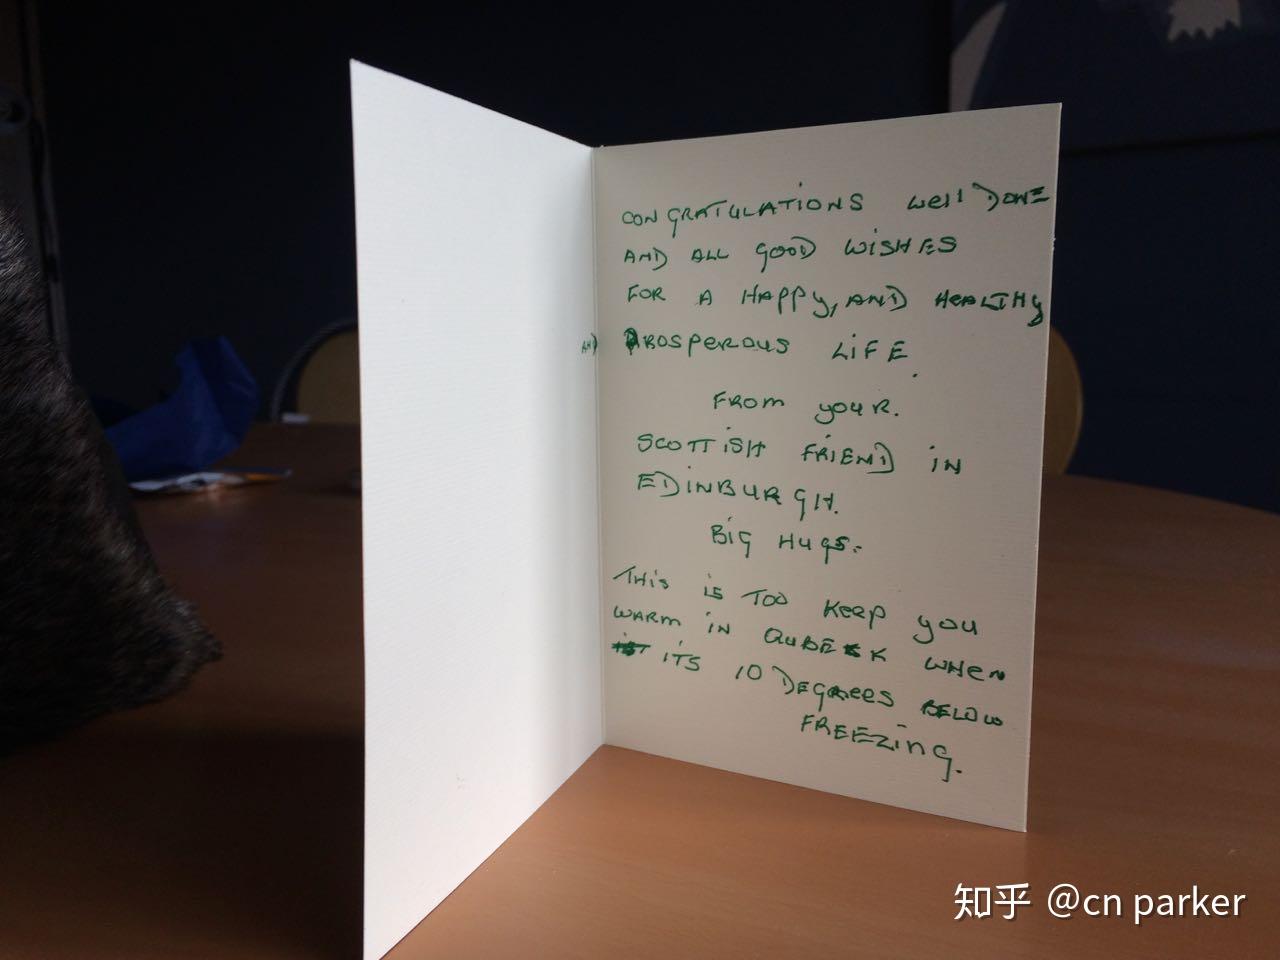 CONGRATULATIONS Well DONE
AND ALL GOOD WISHES
FOR A HAPPy, AND HEALTHy
AND PROSPEROUS LIFE.
FROM youR.
SCOTTISH FRIEND IN
EDINBURGH.
BIG HUgS.
THIS IS TOO KEEP YOU
WARM IN QUBEEK WHEN
ITS 10 DEGREES BELOW
FREEZING.
知乎 @cn parker